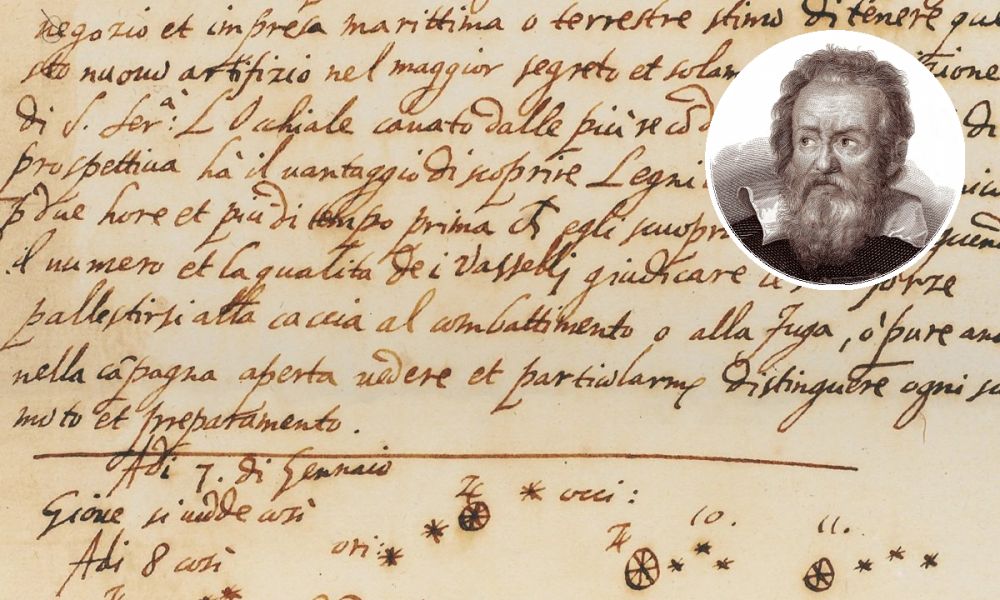 negozio et impresa marittima o terrestre stimo di tenere que
sto nuovo artifizio nel maggior segreto et solam zione
di S. Ser.ᵃ: L Ochiale cavato dalle più reco͂d di
prospettiva hà il vantaggio di scoprire Legni
p due hore et più di tempo prima ch egli scuopr
il numero et la qualità de i Vasselli giudicare forze
pallestirsi alla caccia al combattimento o alla fuga, ò pure an
nella cãpagna aperta vedere et particolarmᵉ distinguere ogni su
moto et preparamento.
Adi 7. di Gennaio
Giove si vedde così ♃ * occi:
Adi 8 così ori: * * ♃ 10. * * * 11. * * *